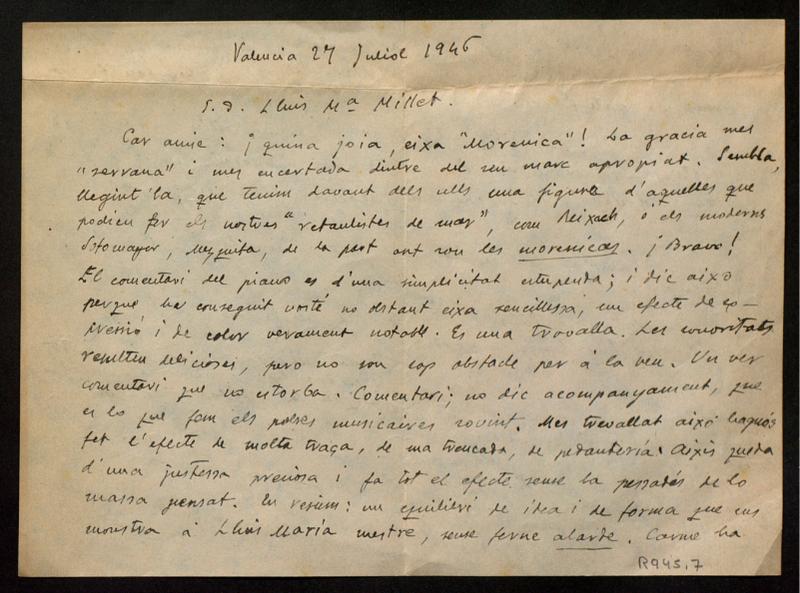 Valencia 27 Juliol 1946
S. D. Lluis Mª Millet.
Car amic: ¡quina joia, eixa "Morenica"! La gracia mes
"serrana" i mes encertada dintre del seu marc apropiat. Sembla,
llegint'la, que tenim davant dels ulls una figura d'aquelles que
podien fer els nostres "retaulistes de mar", com Reixach, o els moderns
Sotomayor, Mezquita, de la part ont son les morenicas. ¡Bravo!
El comentari del piano es d'una simplicitat estupenda; i dic aixo
perque ha conseguit vosté no obstant eixa sencillessa, un efecte de ex-
pressió i de color verament notable. Es una troballa. Les sonoritats
resulten delicioses, pero no son cap obstacle per á la veu. Un ver
comentari que no estorba. Comentari; no dic acompanyament, que
es lo que fem els pobres musicaires sovint. Mes trevallat aixó hagués
fet l'efecte de molta traça, de ma trencada, de pedanteria. Aixis queda
d'una justessa preciosa i fa tot el efecte sense la pessadés de lo
massa pensat. En resum: un equilibri de idea i de forma que ens
monstra á Lluis María mestre, sense ferne alarde. Carme ha
R945,7